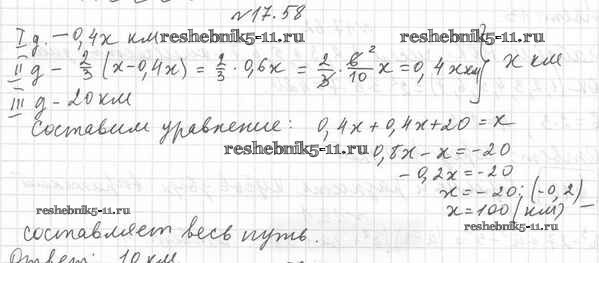 №17.58
I д. – 0,4x км reshebnik5-11.ru reshebnik5-11.ru
II д – 2/3 (x – 0,4x) = 2/3 · 0,6x = 2/3 · 6/10 x = 0,4x км } x км
III д – 20 км
Составим уравнение: 0,4x + 0,4x + 20 = x
reshebnik5-11.ru 0,8x – x = –20
– 0,2x = –20
x = – 20 : (–0,2)
reshebnik5-11.ru x = 100 (км) –
reshebnik5-11.ru
составляет весь путь.
Ответ: 10 км